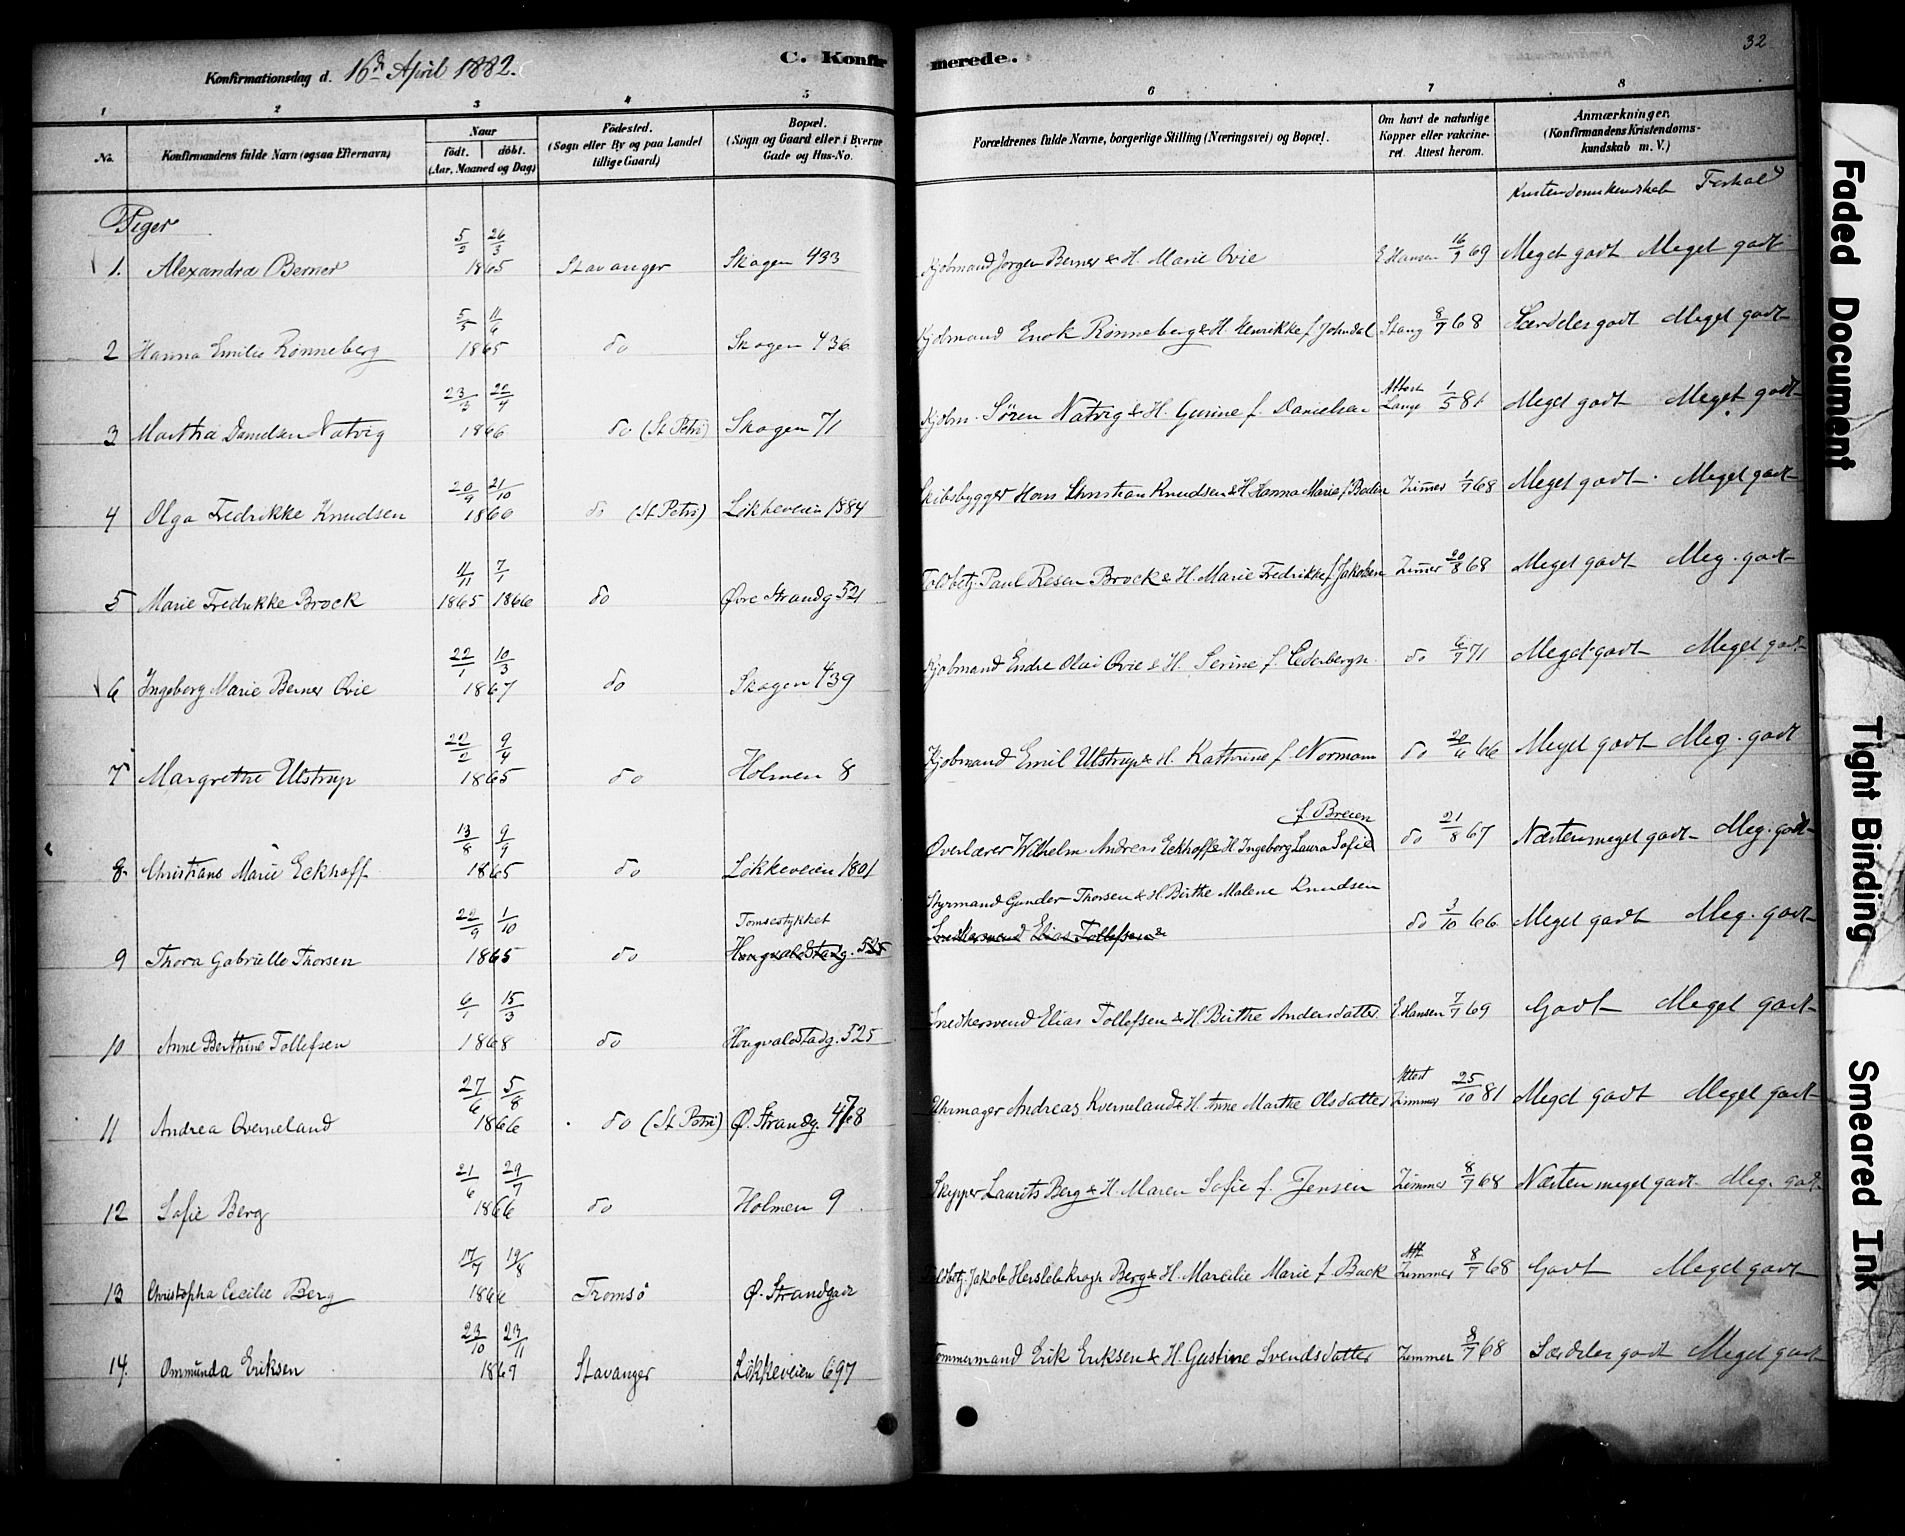 32
Konfirmationsdag d. 16de April 1882.
C. Konfirmerede.
1 2 3 4 5 6 7 8
No. Konfirmandens fulde Navn (ogsaa Efternavn) Naar født. døbt. (Aar, Maaned og Dag) Fødested. (Sogn eller By og paa Landet tillige Gaard) Bopæl. (Sogn og Gaard eller i Byerne Gade og Hus-No. Forældrenes fulde Navne, borgerlige Stilling (Næringsvei) og Bopæl. Om havt de naturlige Kopper eller vakcineret. Attest herom. Anmærkninger. (Konfirmandens Kristendomskundskab m. V.)
Kristendomskundskab Forhold
Piger
1. Alexandra Berner 5/2 26/3 1865 Stavanger Skagen 433 Kjøbmand Jørgen Berner & H. Marie Ovie E Hansen 16/7 69 Meget godt Meget godt
2 Hanna Emilie Rønneberg 5/5 11/6 1865 do Skagen 436 Kjøbmand Enok Rønneberg & H. Henrikke f. Johndal Stang 8/7 68 Særdeles godt Meget godt
3 Martha Danielsen Natvig 23/3 22/4 1866 do (St Petri) Skagen 71 Kjøbm. Søren Natvig & H. Gurine f. Danielsen Attest Lange 1/5 81 Meget godt Meget godt
4 Olga Fredrikke Knudsen 20/9 21/10 1866 do (St Petri) Løkkeveien 1884 Skibsbygger Hans Christian Knudsen & H. Hanna Marie f. Boden Zimmer 1/7 68 Meget godt Meget godt
5 Marie Fredrikke Brock 11/11 1865 7/1 1866 do Øvre Strandg 521 Toldbetj. Paul Resen Brock & H. Marie Fredrikke f. Jakobsen Zimmer 20/8 68 Meget godt Meg. godt
6 Ingeborg Marie Berner Ovie 22/1 10/3 1867 do Skagen 439 Kjøbmand Endre Olai Ovie & H. Serine f. Cederbergh do 6/7 71 Meget godt Meget godt
7 Margrethe Ulstrup 22/2 9/4 1865 do Holmen 8 Kjøbmand Emil Ulstrup & H. Kathrine f. Normann do 20/6 66 Meget godt Meg. godt
8 Christiane Marie Eckhoff 13/8 9/9 1865 do Løkkeveien 1801 Overlærer Wilhelm Andreas Eckhoff & H Ingeborg Laura Sofie f. Breien do 21/8 67 Næsten meget godt Meg. godt
9 Thora Gabrielle Thorsen 22/9 1/10 1865 do Tomsestykket Haugvaldstadg. 525 Styrmand Gunder Thorsen & H. Birthe Malene Knudsen Snedkersvend Elias Tollefsen & do 3/10 66 Meget godt Meg. godt
10 Anne Berthine Tollefsen 6/1 15/3 1868 do Haugvaldstadg. 525 Snedkersvend Elias Tollefsen & H. Birthe Andersdatter E Hansen 7/7 69 Godt Meget godt
11 Andrea Qverneland 27/6 5/8 1866 do (St Petri) Ø. Strandg. 478 Uhrmager Andreas Kverneland & H. Anne Marthe Olsdatter Attest Zimmer 25/10 81 Meget godt Meget godt
12 Sofie Berg 21/6 29/7 1866 do Holmen 9 Skypper Laurits Berg & H. Maren Sofie f. Jensen Zimmer 8/7 68 Næsten meget godt Meg. godt
13 Christopha Cecilie Berg 17/7 19/8 1866 Tromsø Ø. Strandgade Toldbetj. Jakob Hersleb Krogh Berg & H. Marcilie Marie f. Back Att. Zimmer 8/7 68 Godt Meget godt
14. Ommunda Eriksen 23/10 23/11 1867 Stavanger Løkkeveien 697 Tømmermand Erik Eriksen & H. Gustine Svendsdatter Zimmer 8/7 68 Særdeles godt Meget godt
Faded Document
Tight Binding
Smeared Ink